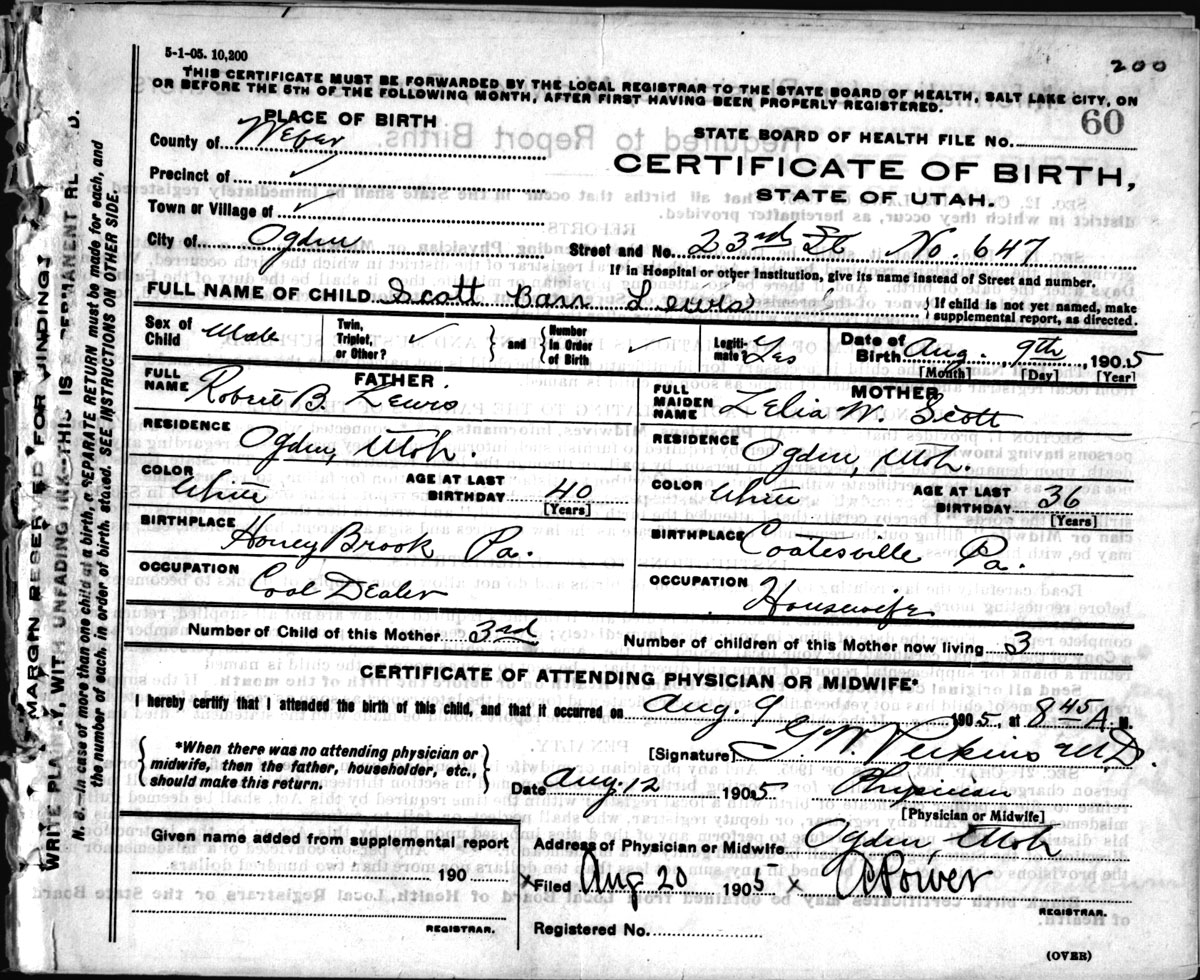 5-1-05. 10,200
200
THIS CERTIFICATE MUST BE FORWARDED BY THE LOCAL REGISTRAR TO THE STATE BOARD OF HEALTH, SALT LAKE CITY, ON
OR BEFORE THE 5TH OF THE FOLLOWING MONTH, AFTER FIRST HAVING BEEN PROPERLY REGISTERED.
PLACE OF BIRTH
County of Weber
Precinct of ✓
Town or Village of ✓
City of Ogden
STATE BOARD OF HEALTH FILE No. 60
CERTIFICATE OF BIRTH,
STATE OF UTAH.
Street and No. 23rd St No 647
If in Hospital or other Institution, give its name instead of Street and number.
FULL NAME OF CHILD Scott Barr Lewis
If child is not yet named, make
supplemental report, as directed.
Sex of Child Male
Twin, Triplet, or Other? ✓
and
Number in Order of Birth ✓
Legitimate? Yes
Date of Birth Aug. 9th, 1905
[Month] [Day] [Year]
FATHER
FULL NAME Robert B. Lewis
RESIDENCE Ogden, Utah.
COLOR White
AGE AT LAST BIRTHDAY 40
[Years]
BIRTHPLACE Honey Brook Pa.
OCCUPATION Coal Dealer
MOTHER
FULL MAIDEN NAME Lelia W. Scott
RESIDENCE Ogden, Utah.
COLOR White
AGE AT LAST BIRTHDAY 36
[Years]
BIRTHPLACE Coatesville Pa.
OCCUPATION Housewife
Number of Child of this Mother 3rd
Number of children of this Mother now living 3
CERTIFICATE OF ATTENDING PHYSICIAN OR MIDWIFE*
I hereby certify that I attended the birth of this child, and that it occurred on Aug. 9 1905, at 8 45 A. M.
*When there was no attending physician or
midwife, then the father, householder, etc.,
should make this return.
[Signature] G.W. Perkins M.D.
Date Aug. 12 1905 Physician
[Physician or Midwife]
Given name added from supplemental report
190
REGISTRAR.
Address of Physician or Midwife Ogden, Utah
x Filed Aug 20 1905 x A Power
REGISTRAR.
Registered No.
(OVER)
MARGIN RESERVED FOR BINDING
WRITE PLAINLY, WITH UNFADING INK—THIS IS A PERMANENT
N. B.—In case of more than one child at a birth, a SEPARATE RETURN must be made for each, and
the number of each, in order of birth, stated. SEE INSTRUCTIONS ON OTHER SIDE.